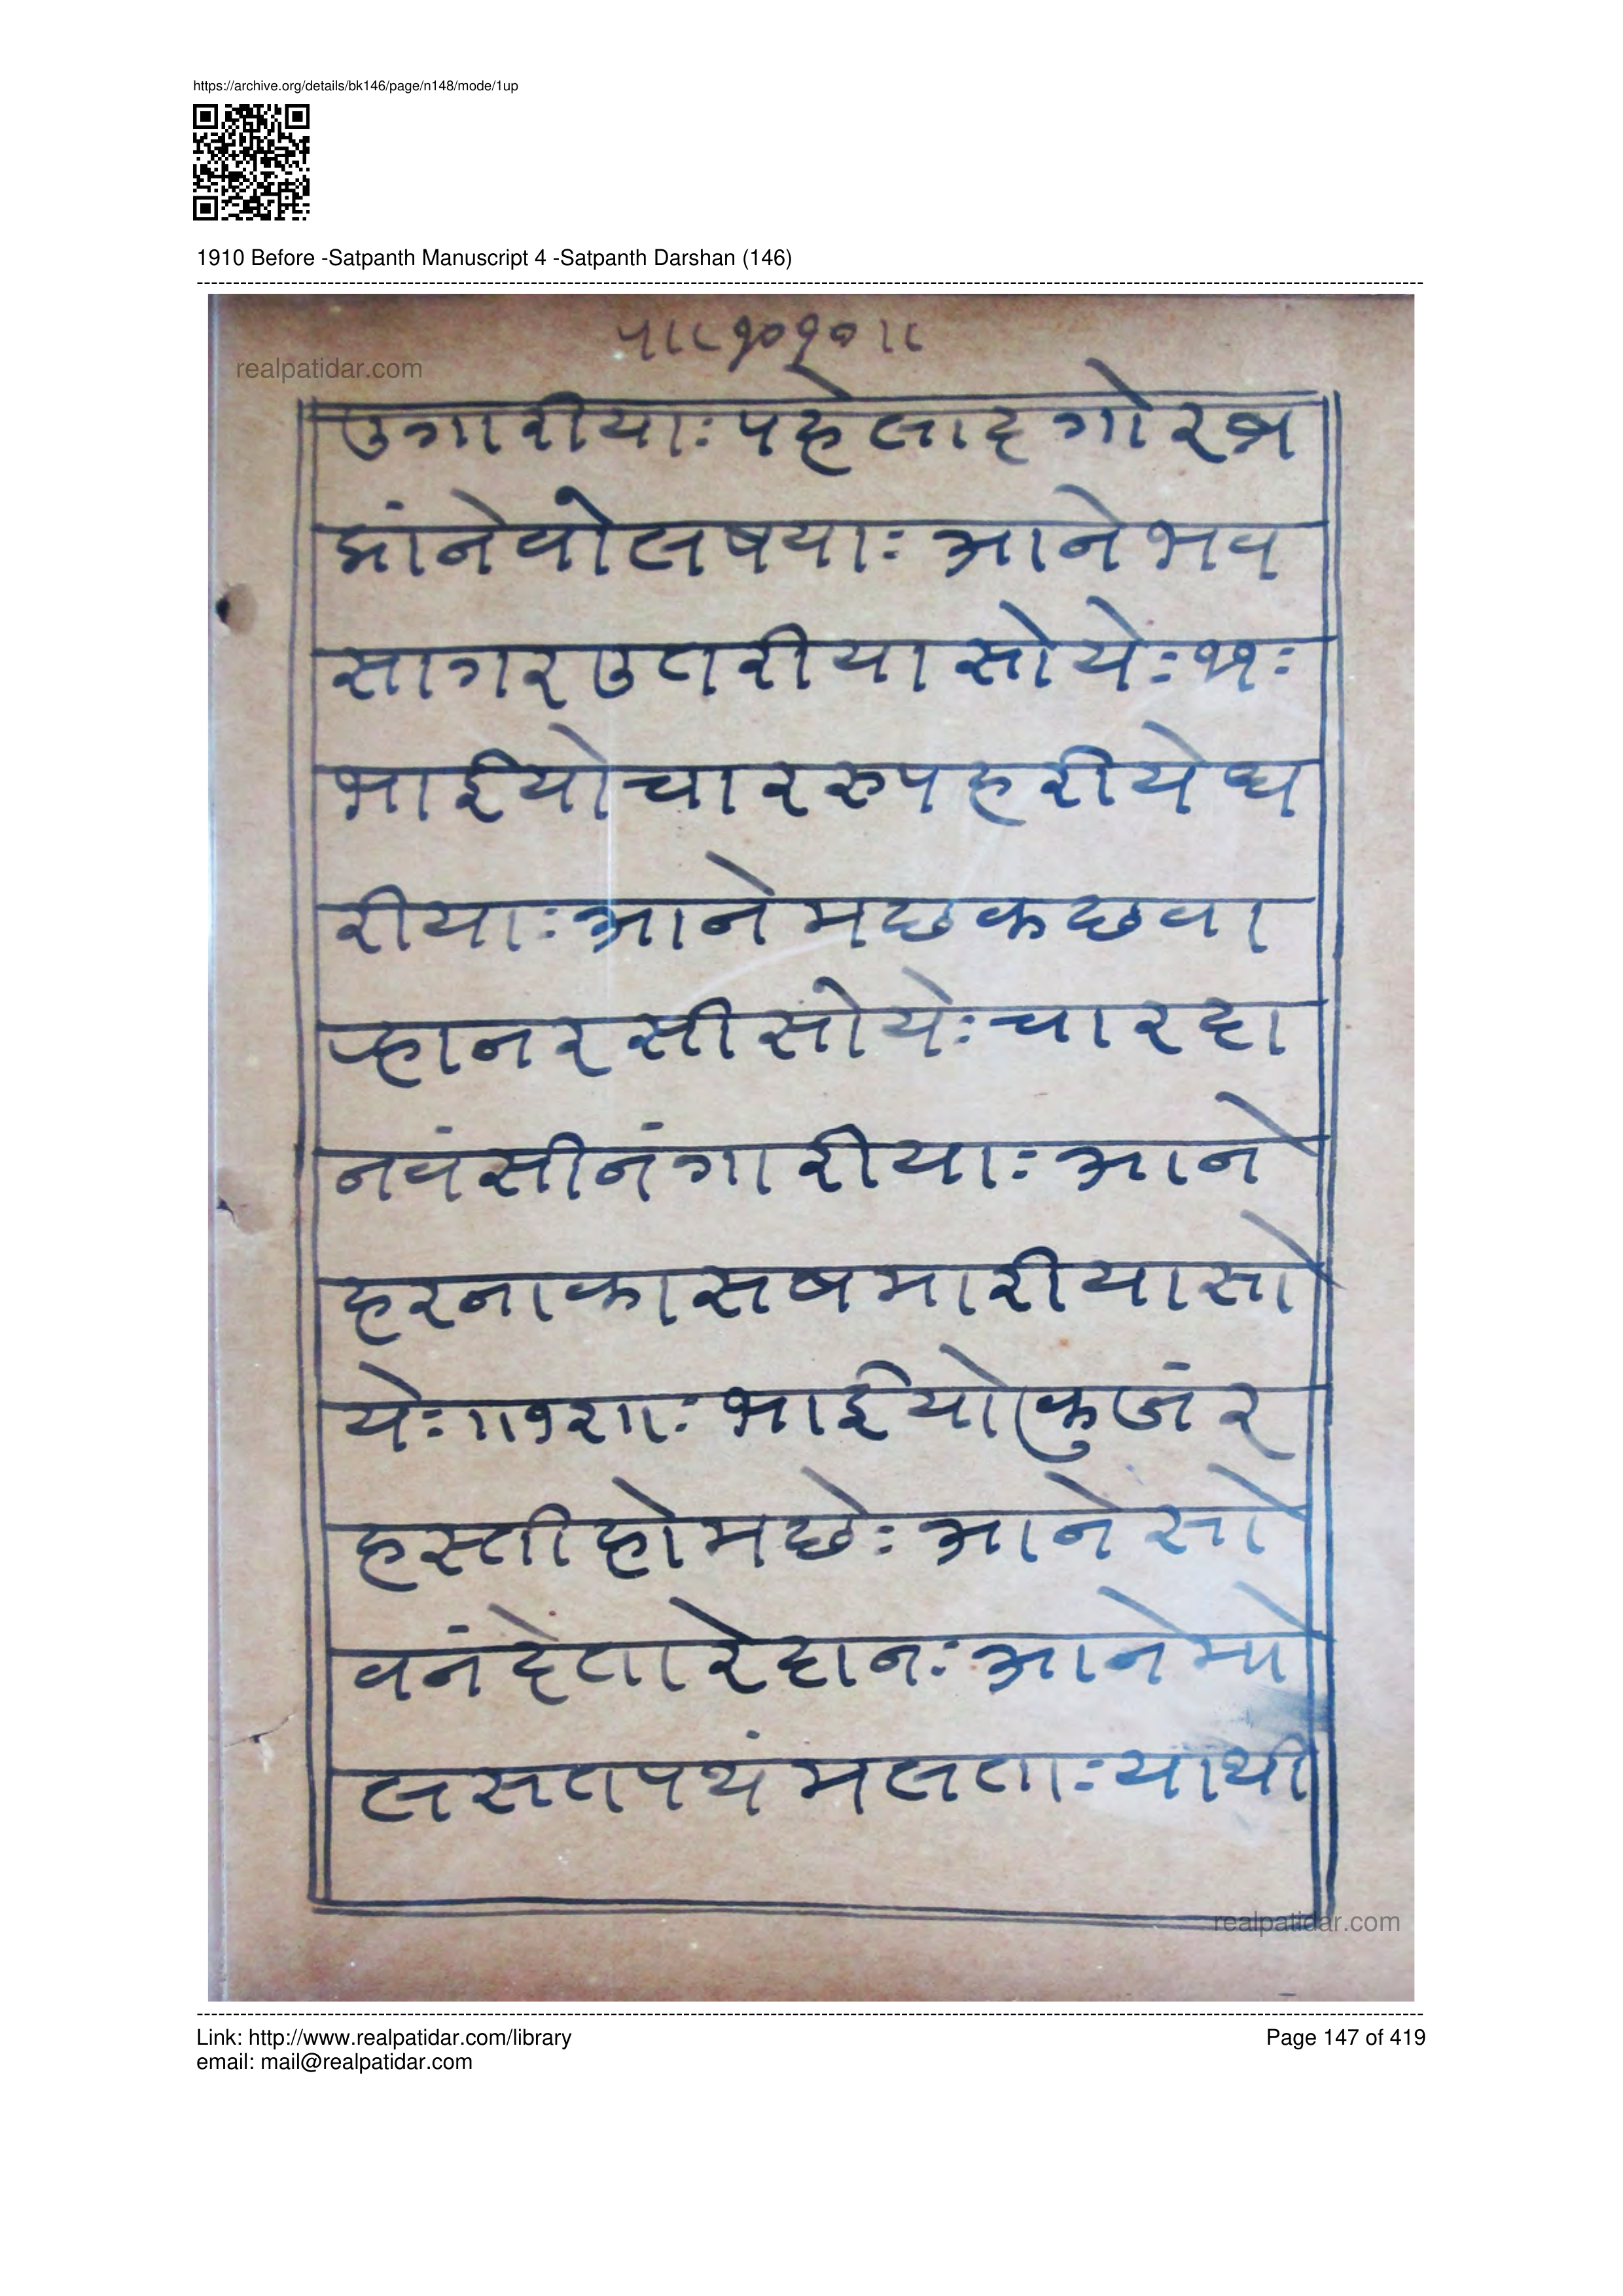 https://archive.org/details/bk146/page/n148/mode/1up
1910 Before -Satpanth Manuscript 4 -Satpanth Darshan (146)
realpatidar.com
उगारीयाः पहेलाद गोर ब्र
मांने वोलषयाः आने भव
सागर उतरीया सोयेः ११ः
भाईयो चार रुप हरीये ध
रीयाः आने मछ कछ वा
राहा नरसी सोयेः चार दा
नवं सीनंगारीयाः आने
हरनाकासष मारीया सो
येः॥१२॥ः भाईयो कुजंर
हस्ती होमछेः आने सो
वनं देतारे दानः आने मो
ल सतपथं मलताः याथी
realpatidar.com
Link: http://www.realpatidar.com/library
email: mail@realpatidar.com
Page 147 of 419